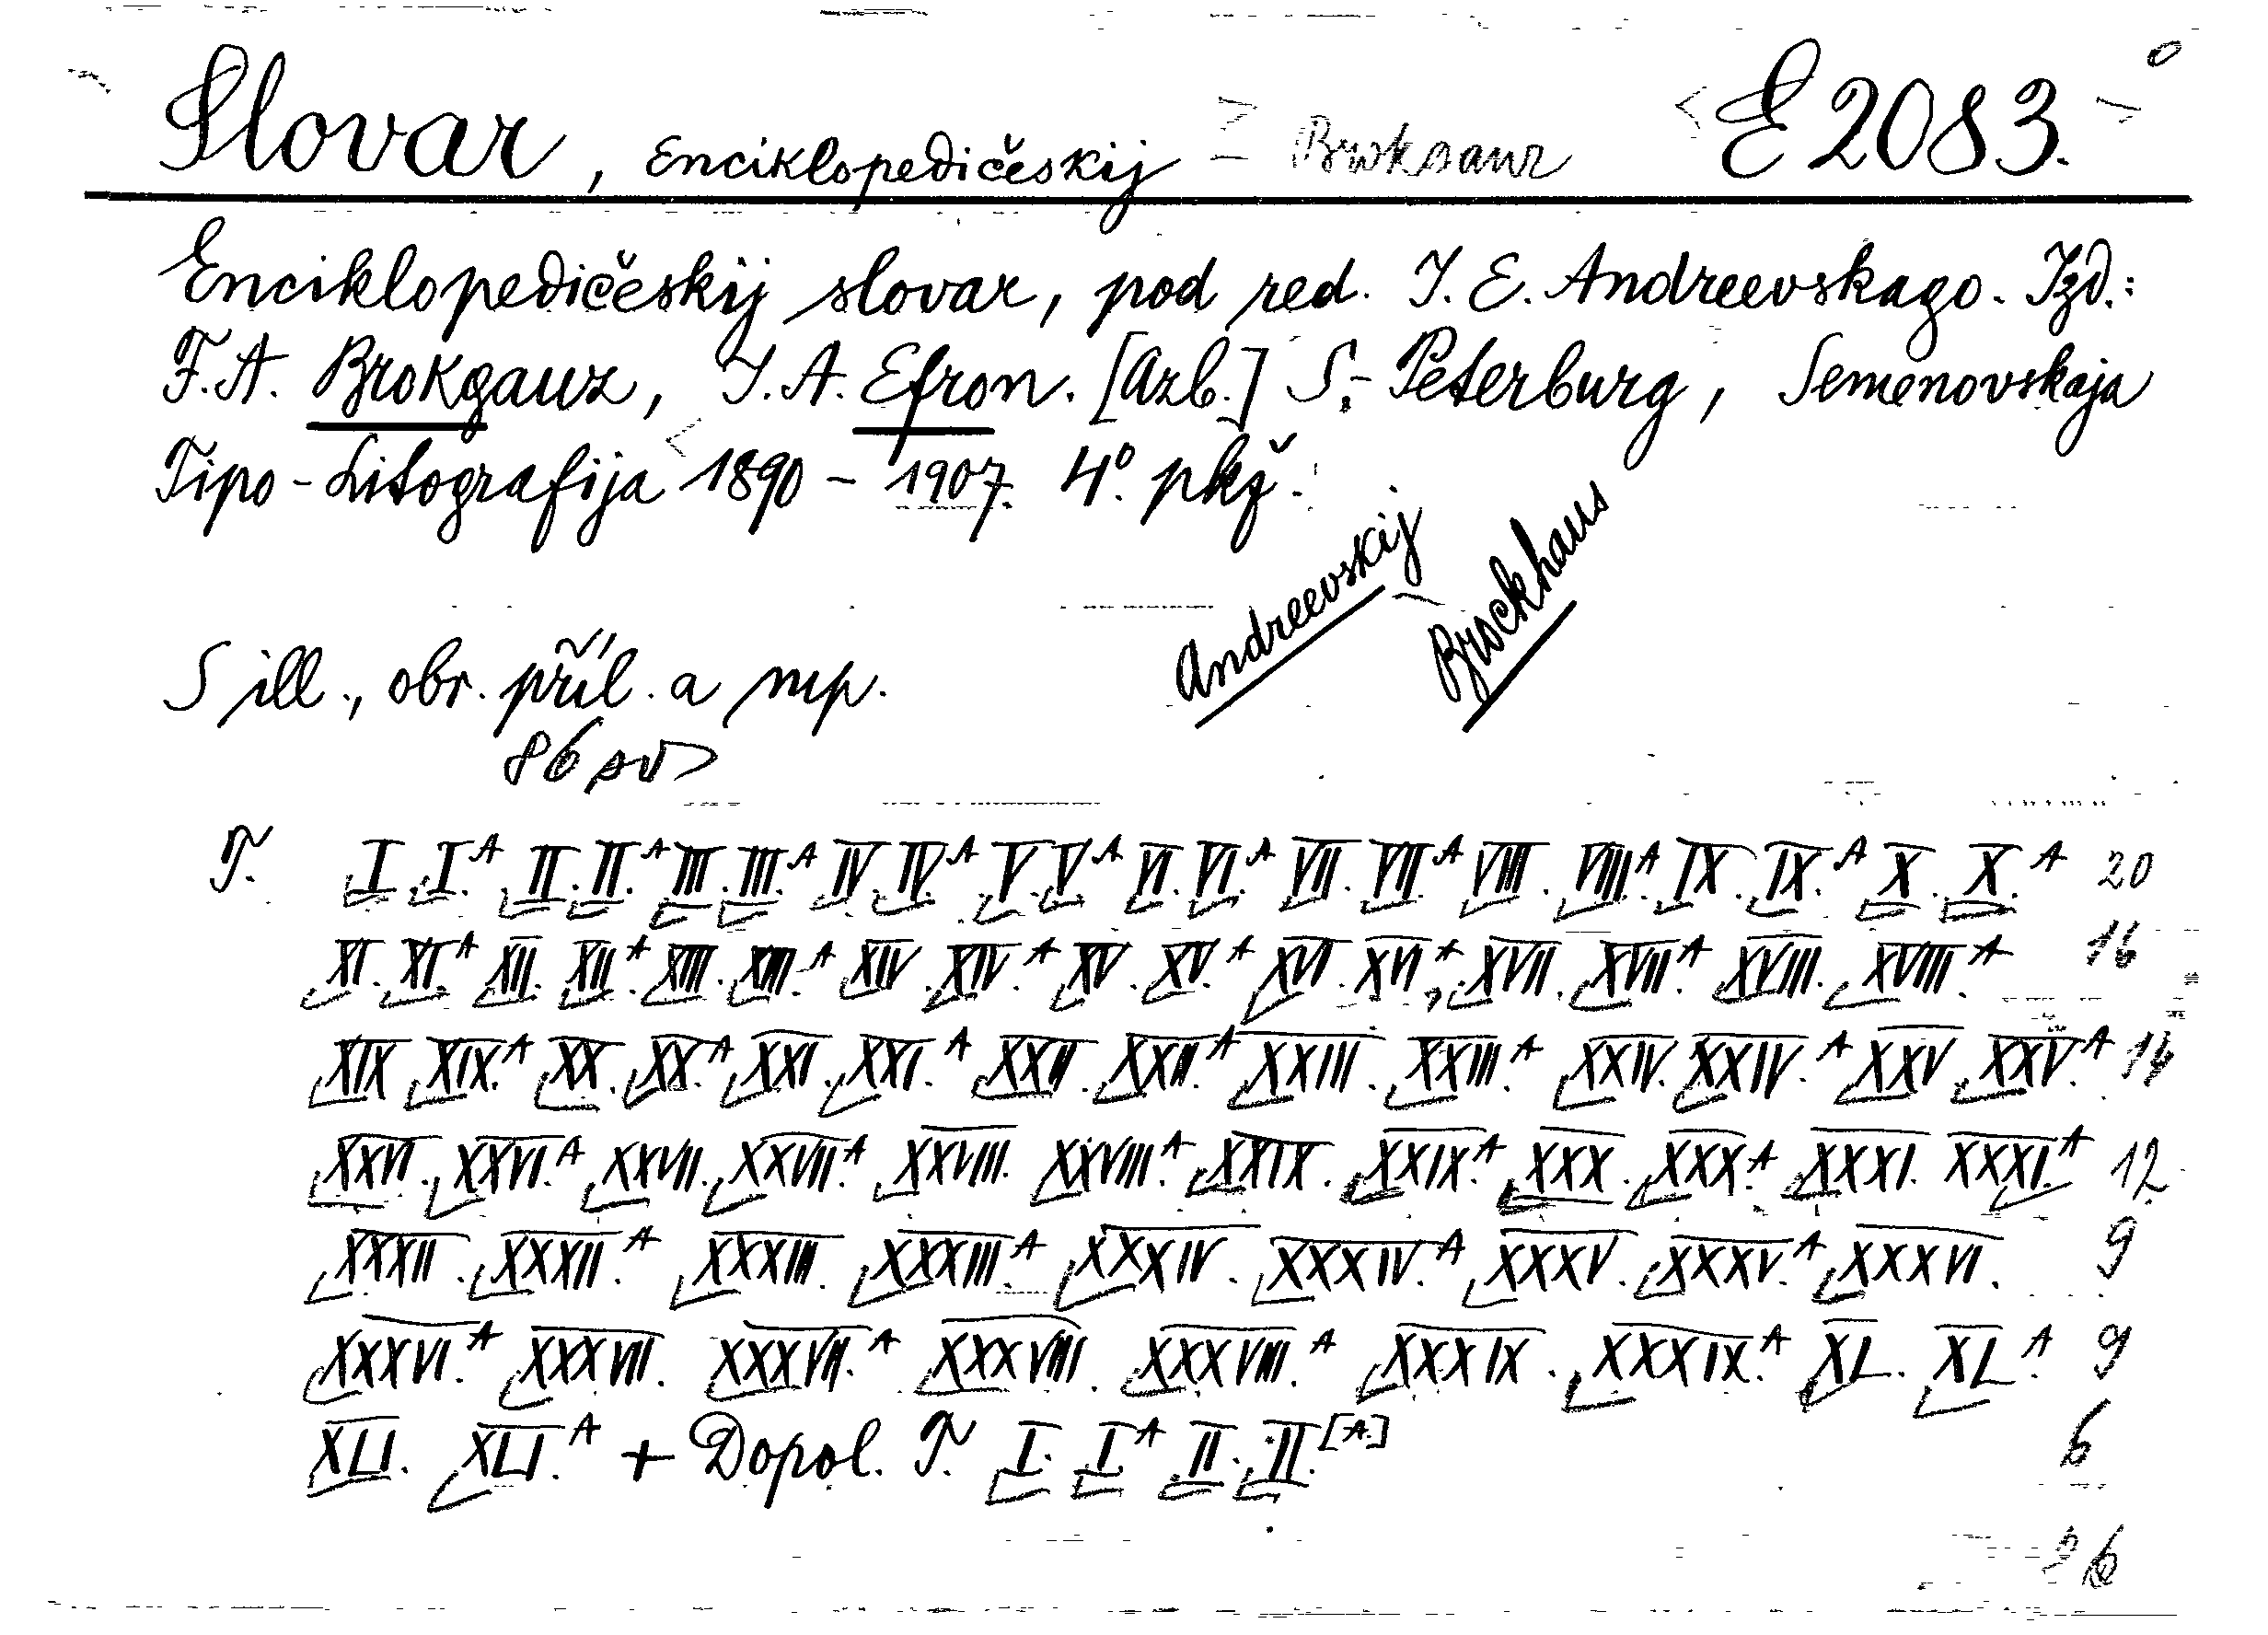 Slovar, Enciklopedičeskij – E 2083.
Enciklopedičeskij slovar, pod red. I. E. Andreevskago. Izd.:
F. A. Brokgauz, I. A. Efron. [Azb.] S.-Peterburg, Semenovskaja
Tipo-Litografija 1890 – 1907. 4º. pkž.
Andreevskij
Brockhaus
S ill., obr. příl. a mp.
86 sv
T. I. I.A II. II.A III. III.A IV. IV.A V. V.A VI. VI.A VII. VII.A VIII. VIII.A IX. IX.A X. X.A 20
XI. XI.A XII. XII.A XIII. XIII.A XIV. XIV.A XV. XV.A XVI. XVI.A XVII. XVII.A XVIII. XVIII.A 16
XIX XIX.A XX. XX.A XXI. XXI.A XXII XXII.A XXIII. XXIII.A XXIV. XXIV.A XXV XXV.A 14
XXVI. XXVI.A XXVII. XXVII.A XXVIII. XXVIII.A XXIX. XXIX.A XXX. XXX.A XXXI. XXXI.A 12
XXXII. XXXII.A XXXIII. XXXIII.A XXXIV. XXXIV.A XXXV. XXXV.A XXXVI. 9
XXXVI.A XXXVII. XXXVII.A XXXVIII. XXXVIII.A XXXIX. XXXIX.A XL. XL.A 9
XLI. XLI.A + Dopol. T. I. I.A II. II.[A.] 6